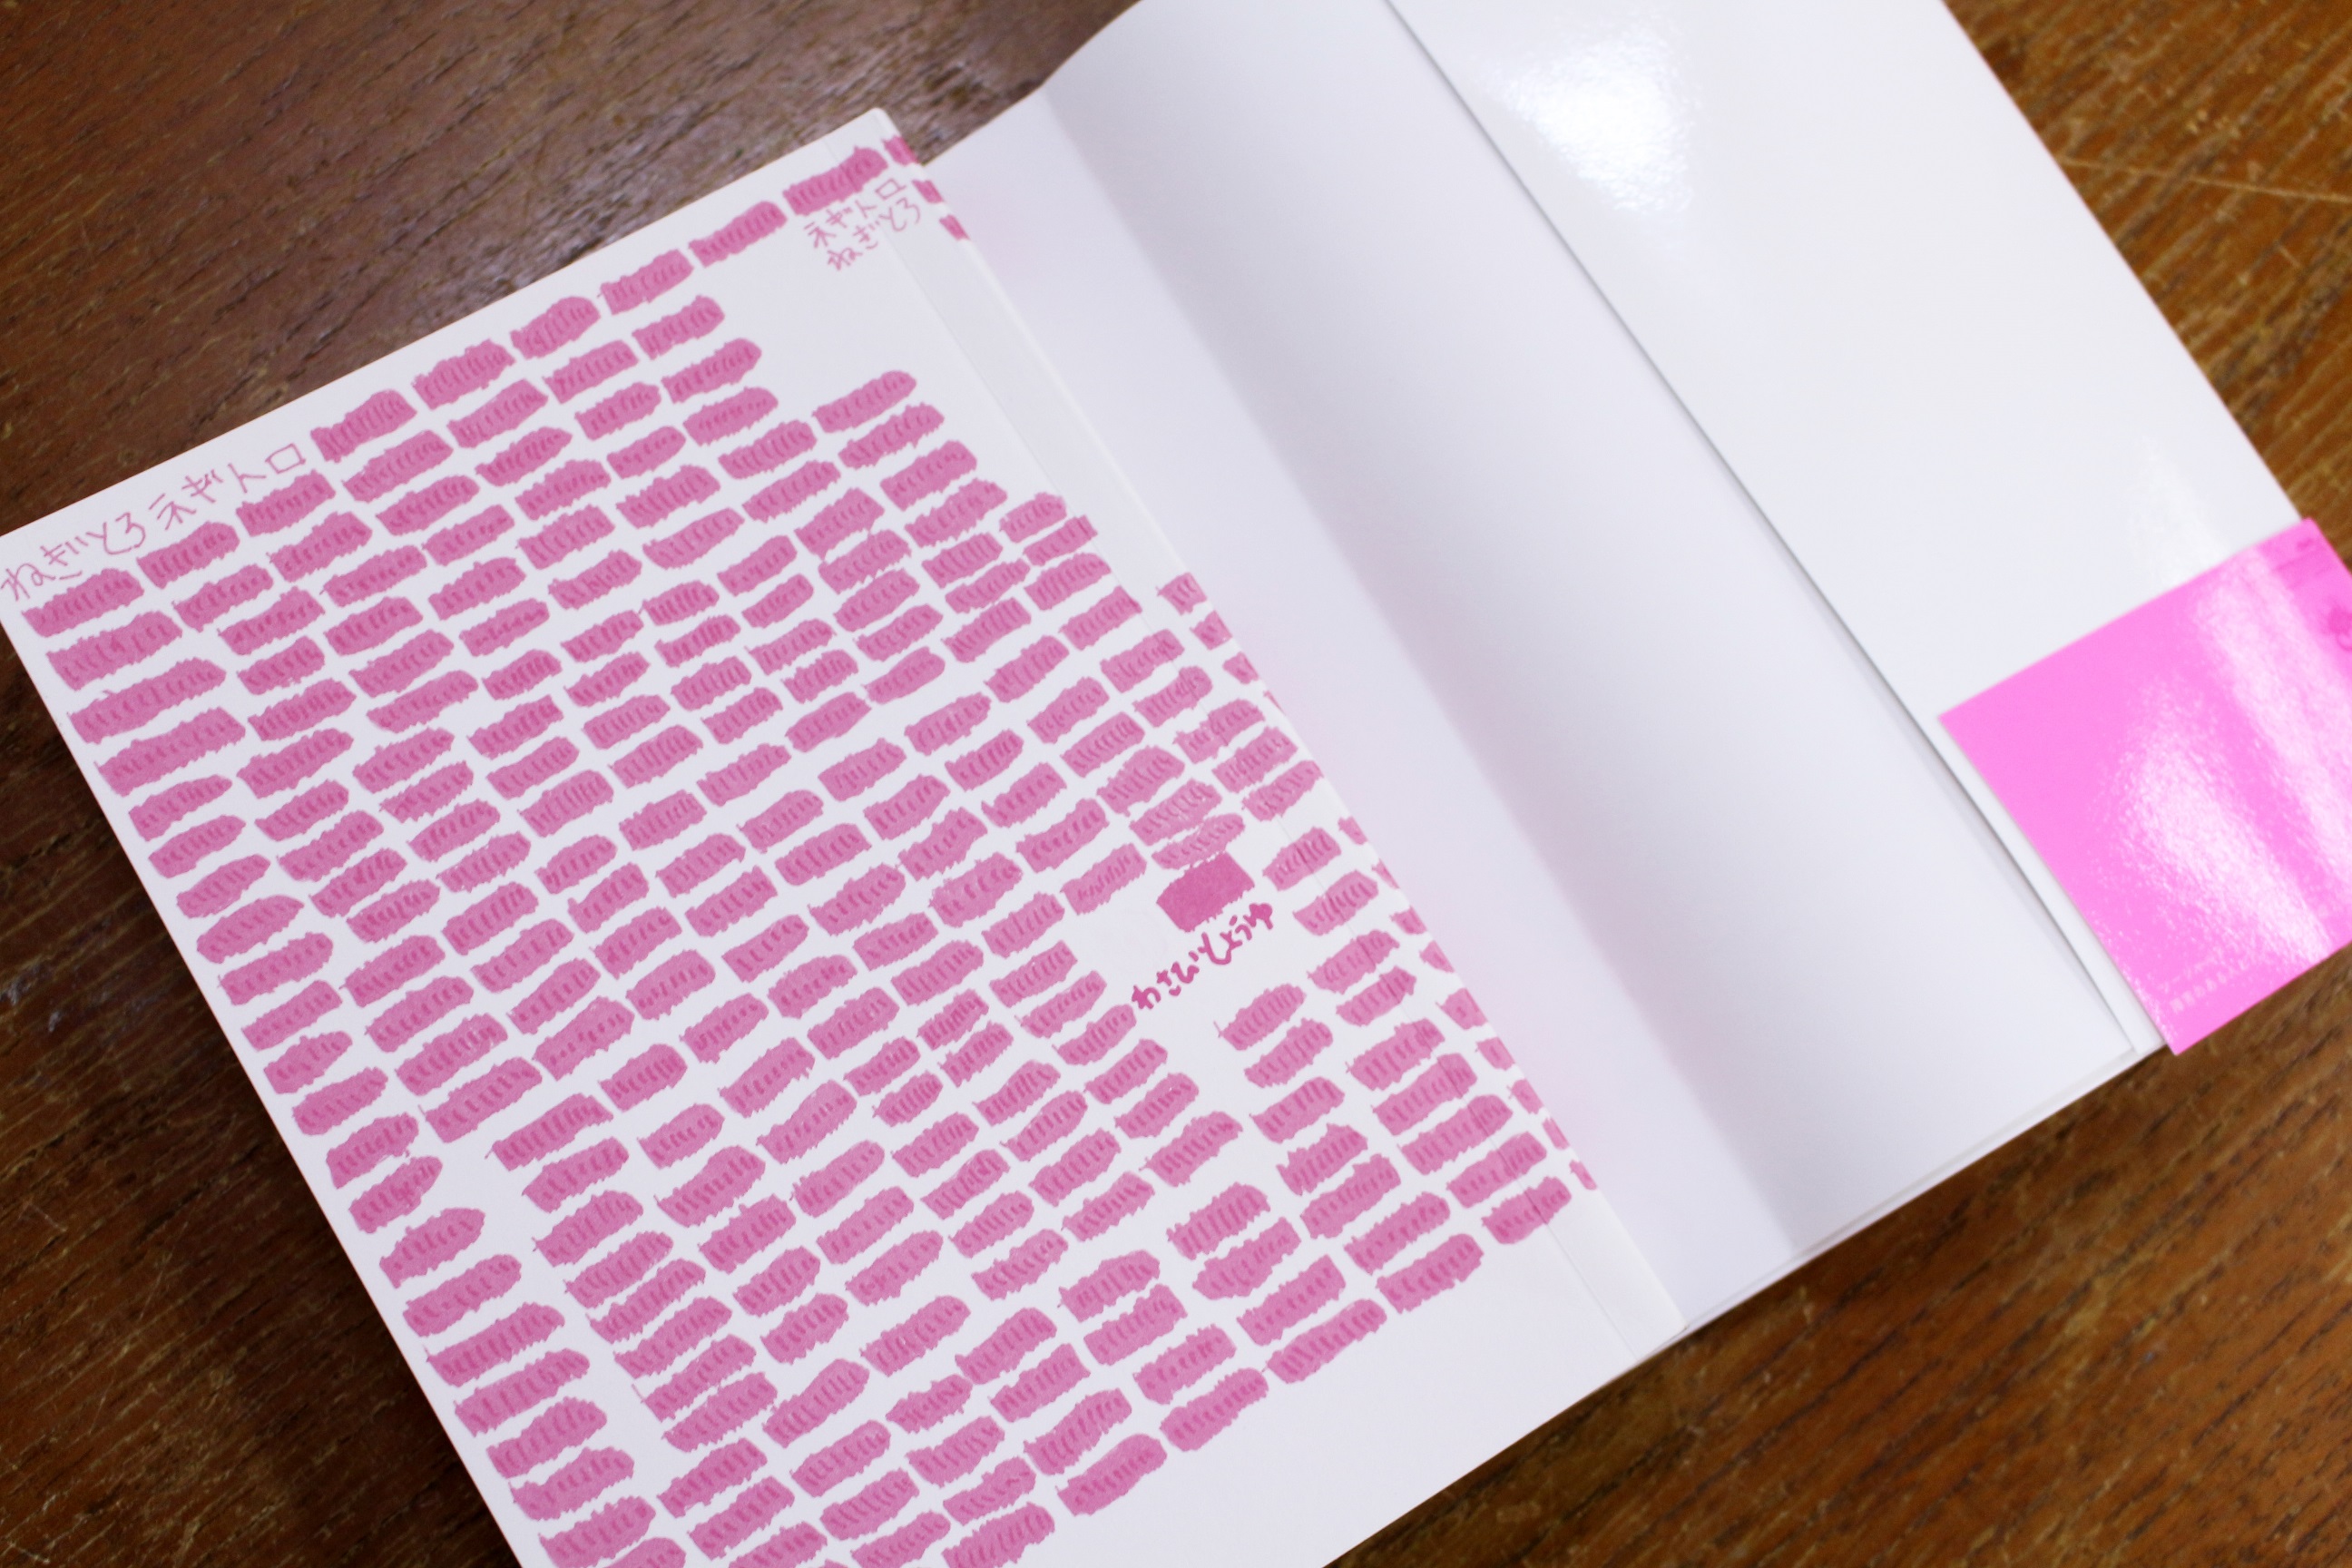 ねぎとろ ネギトロ
ネギトロ
ねぎとろ
わさびしょうゆ